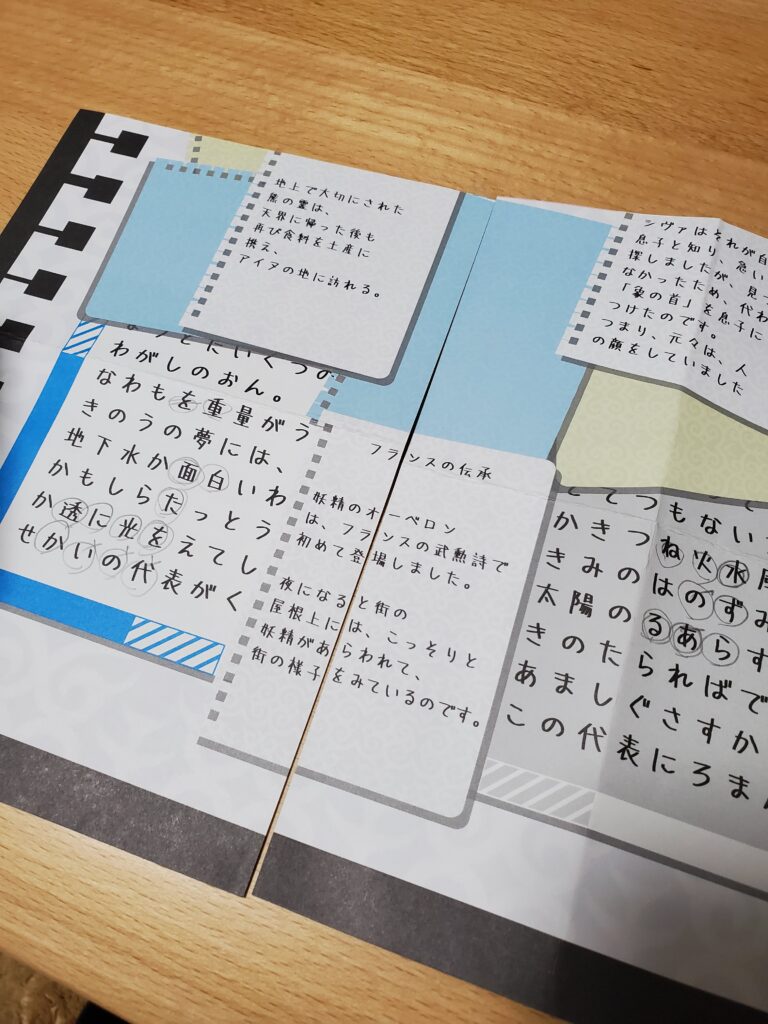 地上で大切にされた
熊の霊は、
天界に帰った後も
再び食料を土産に
携え、
アイヌの地に訪れる。
わがしのおん。
なわもを重量がう
きのうの夢には、
地下水か面白いわ
かもしらたっとう
か透に光をえてし
せかいの代表がく
フランスの伝承
妖精のオーベロン
は、フランスの武勲詩で
初めて登場しました。
夜になると街の
屋根上には、こっそりと
妖精があらわれて、
街の様子をみているのです。
シヴァはそれが自
息子と知り、急い
探しましたが、見つ
なかったため、代わ
「象の首」を息子に
つけたのです。
つまり、元々は、人
の顔をしていました
てつもない
かきつね火水
きみのはのずみ
太陽のるあらす
きのたらればで
あましぐさすか
この代表にろま